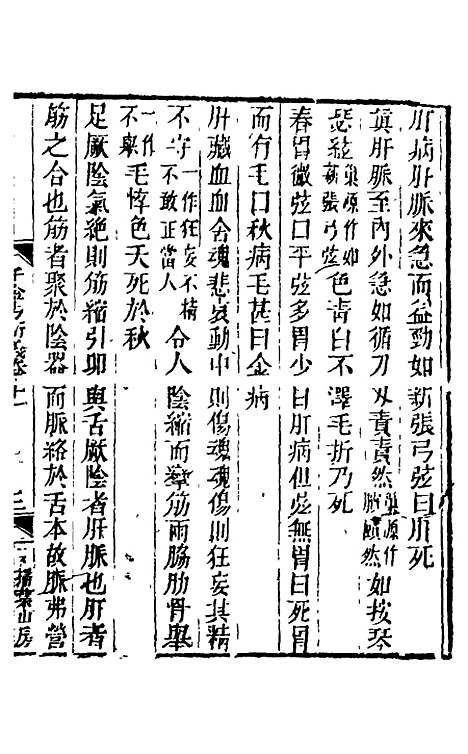 肝病肝脈來急而益勁如新張弓弦曰肝死
眞肝脈至內外急如循刀刃責責然巢源作賾賾然如按琴
瑟絃巢源作如新張弓弦色青白不澤毛折乃死
春胃微弦曰平弦多胃少曰肝病但弦無胃曰死胃
而有毛曰秋病毛甚曰金病
肝藏血血舍魂悲哀動中則傷魂魂傷則狂妄其精
不守一作狂妄不精不敢正當人令人陰縮而攣筋兩脇肋骨舉
一作不舉毛悴色夭死於秋
足厥陰氣絕則筋縮引卵與舌厥陰者肝脈也肝者
筋之合也筋者聚於陰器而脈絡於舌本故脈弗營
千金方衍義卷十一 三 掃葉山房